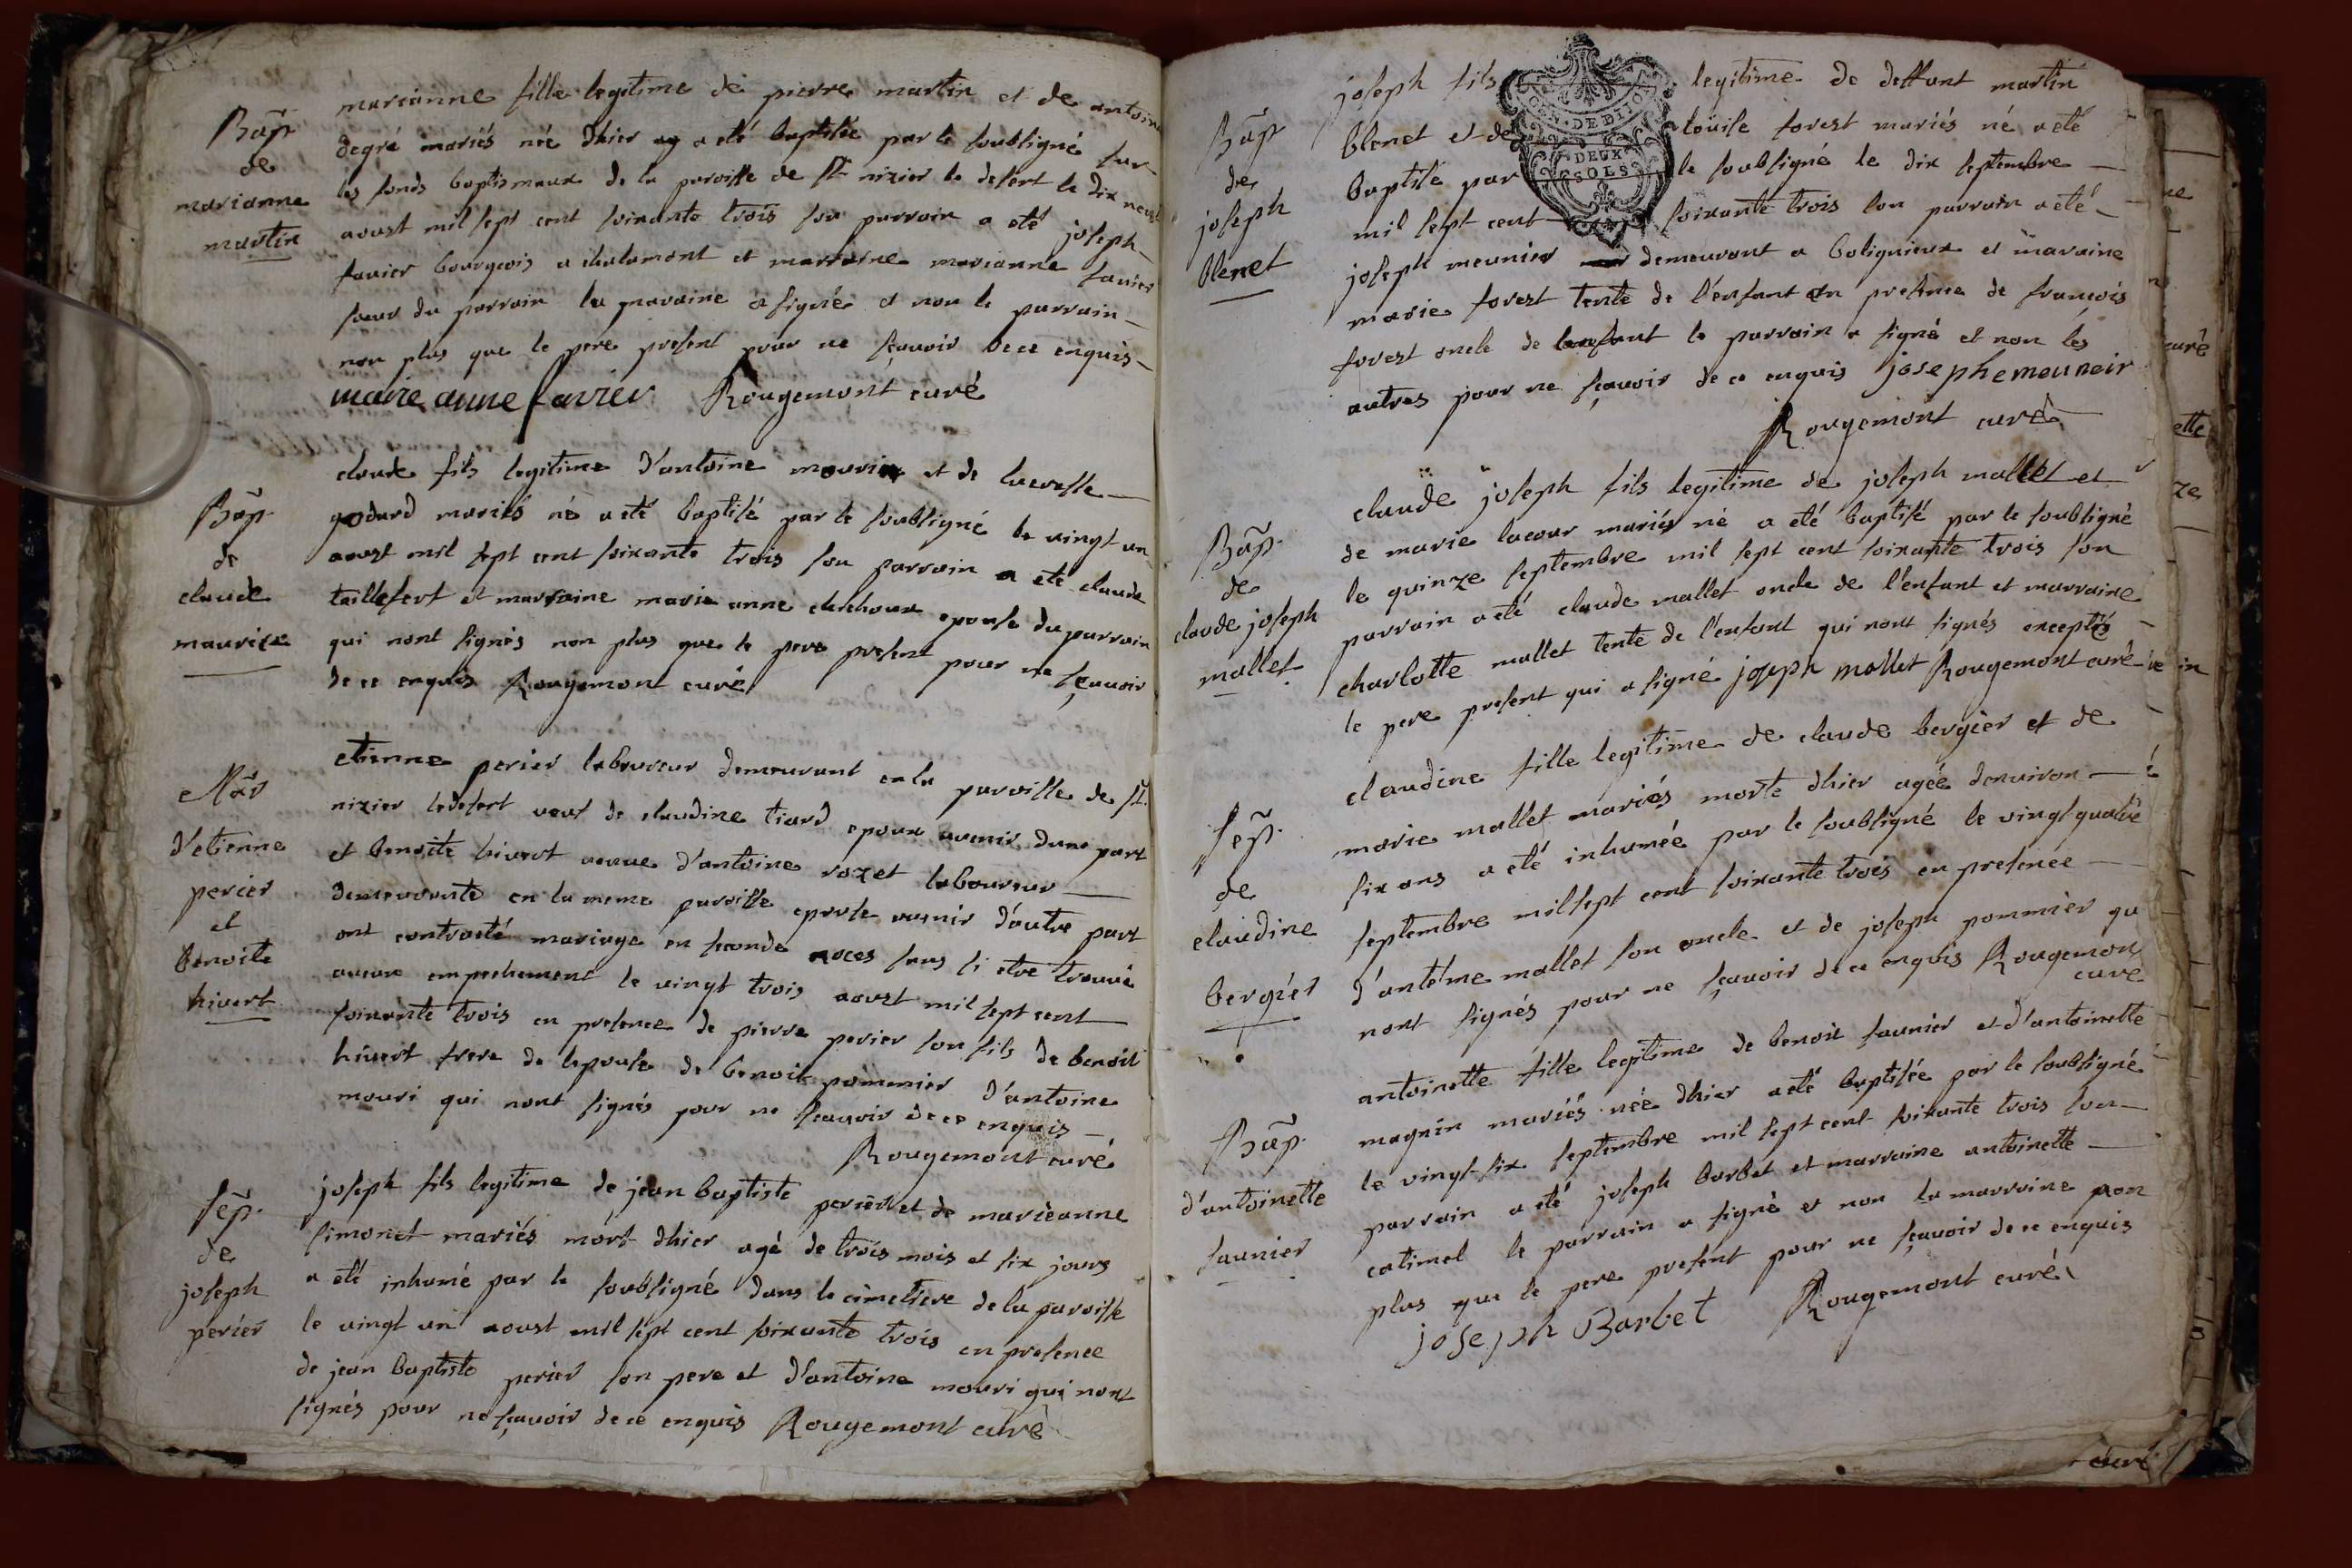 Bap̃
de
marianne
martin
marianne fille legitime de pierre martin et de antoin
degré mariés née dhier a eté baptisée par le soubsigné sur
les fonds baptismaux de la paroisse de st nizier le desert le dix neuf
aoust mil sept cent soixante trois son parrain a eté joseph
favier bourgeois a chalamont et marraine marianne favier
soeur du parrain la maraine a signée et non le parrain
non plus que le pere present pour ne sçavoir de ce enquis
marie anne favier Rougemont curé
Bap̃
de
claude
maurice
claude fils legitime d'antoine et de
godard mariés né a eté baptisé par le soubsigné le vingt un
aoust mil sept cent soixante trois son parrain a eté claude
taillefert et marraine marie anne epouse du parrain
qui nont signés non plus que le pere present pour ne sçavoir
de ce enquis Rougemont curé
Mar
d'etienne
perier
et
benoite
hivert
etienne perier laboureur demeurant en la paroisse de st.
nizier le desert veuf de claudine tiard epoux avenir dune part
et benoite hivert veuve d'antoine rozet laboureur
demeurante en la meme paroisse epouse avenir d'autre part
ont contracté mariage en seconde noces sans si etre trouvé
aucun empechement le vingt trois aoust mil sept cent
soixante trois en presence de pierre perier son fils de benoit
hivert frere de lepouse de benoit pommier d'antoine
mouri qui nont signés pour ne sçavoir de ce enquis
Rougemont curé
sep̃.
de
joseph
perier
joseph fils legitime de jean baptiste perier et de marieanne
simonet mariés mort dhier agé de trois mois et six jours
a eté inhumé par le soubsigné dans le cimetiere de la paroisse
le vingt un aoust mil sept cent soixante trois en presence
de jean baptiste perier son pere et d'antoine mouri qui nont
signés pour ne sçavoir de ce enquis Rougemont curé
Bap̃
de
joseph
blenet
joseph fils legitime de deffunt martin
blenet et de loüise forest mariés né a eté
baptisé par le soubsigné le dix septembre
mil sept cent soixante trois son parrain a eté
joseph meunier demeurant a boligneux et maraine
marie forest tente de l'enfant en presence de francois
forest oncle de lenfant le parrain a signé et non les
autres pour ne sçavoir de ce enquis josephe meuneir
Rougemont curé
DEUX
SOLS
Bap̃.
de
claude joseph
mallet
claude joseph fils legitime de joseph mallet et
de marie lacour mariés né a eté baptisé par le soubsigné
le quinze septembre mil sept cent soixante trois son
parrain a eté claude mallet oncle de l'enfant et marraine
charlotte mallet tente de l'enfant qui nont signés exceptés
le pere present qui a signé joseph mallet Rougemont curé
sep̃.
de
claudine
bergier
claudine fille legitime de claude bergier et de
marie mallet mariés morte dhier agée denviron
six ans a eté inhumée par le soubsigné le vingt quatre
septembre mil sept cent soixante trois en presence
d'antéme mallet son oncle et de joseph pommier qu
nont signés pour ne sçavoir de ce enquis Rougemon
curé
Bap̃.
d'antoinette
saunier
antoinette fille legitime de benoit saunier et d'antoinette
magnin mariés née dhier a eté baptisée par le soubsigné
le vingt six septembre mil sept cent soixante trois son
parrain a eté joseph barbet et marraine antoinette
catimel le parrain a signé et non la marraine non
plus que le pere present pour ne sçavoir de ce enquis
joseph Barbet Rougemont curé
curé